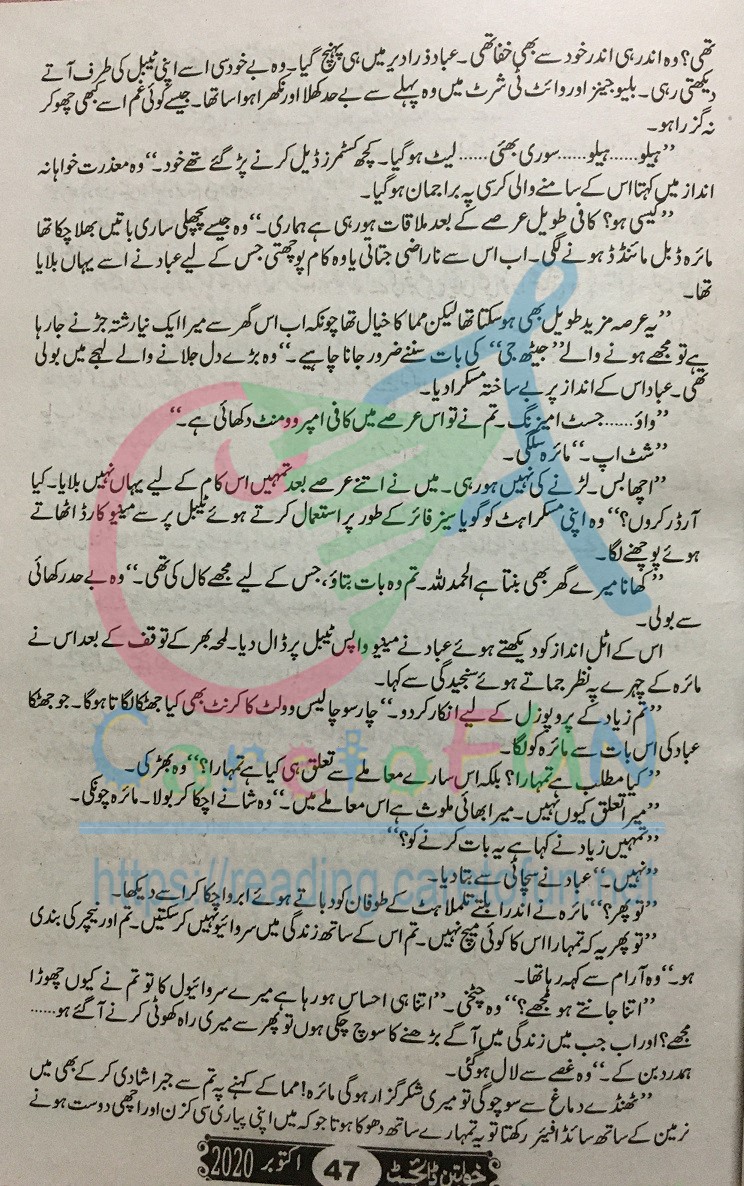 تھی؟ وہ اندر ہی اندر خود سے بھی خفا تھی۔ عباد ذرا دیر میں ہی پہنچ گیا۔ وہ بے خود سی اسے اپنی ٹیبل کی طرف آتے
دیکھتی رہی۔ بلیو جینز اور وائٹ ٹی شرٹ میں وہ پہلے سے بے حد کھلا اور نکھرا ہوا سا تھا۔ جیسے کوئی غم اسے کبھی چھو کر
نہ گزرا ہو۔
”ہیلو...... ہیلو...... سوری بھئی...... لیٹ ہو گیا۔ کچھ کسٹمرز ڈیل کرنے پڑ گئے تھے خود۔“ وہ معذرت خواہانہ
انداز میں کہتا اس کے سامنے والی کرسی پہ براجمان ہو گیا۔
”کیسی ہو؟ کافی طویل عرصے کے بعد ملاقات ہو رہی ہے ہماری۔“ وہ جیسے پچھلی ساری باتیں بھلا چکا تھا
مائرہ ڈبل مائنڈڈ ہونے لگی۔ اب اس سے ناراضی جتاتی یا وہ کام پوچھتی جس کے لیے عباد نے اسے یہاں بلایا
تھا۔
”یہ عرصہ مزید طویل بھی ہو سکتا تھا لیکن مما کا خیال تھا چونکہ اب اس گھر سے میرا ایک نیا رشتہ جڑنے جا رہا
ہے تو مجھے ہونے والے ”جیٹھ جی“ کی بات سننے ضرور جانا چاہیے۔“ وہ بڑے دل جلانے والے لہجے میں بولی
تھی۔ عباد اس کے انداز پر بے ساختہ مسکرا دیا۔
”واؤ...... جسٹ امیزنگ۔ تم نے تو اس عرصے میں کافی امپروومنٹ دکھائی ہے۔“
”شٹ اپ۔“ مائرہ سلگی۔
”اچھا بس۔ لڑنے کی نہیں ہو رہی۔ میں نے اتنے عرصے بعد تمہیں اس کام کے لیے یہاں نہیں بلایا۔ کیا
آرڈر کروں؟“ وہ اپنی مسکراہٹ کو گویا سیز فائر کے طور پر استعمال کرتے ہوئے ٹیبل پر سے مینیو کارڈ اٹھاتے
ہوئے پوچھنے لگا۔
”کھانا میرے گھر بھی بنتا ہے الحمدللہ۔ تم وہ بات بتاؤ، جس کے لیے مجھے کال کی تھی۔“ وہ بے حد رکھائی
سے بولی۔
اس کے اٹل انداز کو دیکھتے ہوئے عباد نے مینیو واپس ٹیبل پر ڈال دیا۔ لمحہ بھر کے توقف کے بعد اس نے
مائرہ کے چہرے پہ نظر جماتے ہوئے سنجیدگی سے کہا۔
”تم زیاد کے پروپوزل کے لیے انکار کر دو۔“ چار سو چالیس وولٹ کا کرنٹ بھی کیا جھٹکا لگاتا ہوگا۔ جو جھٹکا
عباد کی اس بات سے مائرہ کو لگا۔
”کیا مطلب ہے تمہارا؟ بلکہ اس سارے معاملے سے تعلق ہی کیا ہے تمہارا؟“ وہ بھڑکی۔
”میرا تعلق کیوں نہیں۔ میرا بھائی ملوث ہے اس معاملے میں۔“ وہ شانے اچکا کر بولا۔ مائرہ چونکی۔
”تمہیں زیاد نے کہا ہے یہ بات کرنے کو؟“
”نہیں۔“ عباد نے سچائی سے بتا دیا۔
”تو پھر؟“ مائرہ نے اندر ابلتے تلملاہٹ کے طوفان کو دباتے ہوئے ابرو اچکا کر اسے دیکھا۔
”تو پھر یہ کہ تمہارا اس کا کوئی میچ نہیں۔ تم اس کے ساتھ زندگی میں سروائیو نہیں کر سکتیں۔ تم اور نیچر کی بندی
ہو۔“ وہ آرام سے کہہ رہا تھا۔
”اتنا جانتے ہو مجھے؟“ وہ چٹخی۔ ”اتنا ہی احساس ہو رہا ہے میرے سروائیول کا تو تم نے کیوں چھوڑا
مجھے؟ اور اب جب میں زندگی میں آگے بڑھنے کا سوچ چکی ہوں تو پھر سے میری راہ کھوٹی کرنے آ گئے ہو......
ہمدرد بن کے۔“ وہ غصے سے لال ہو گئی۔
”ٹھنڈے دماغ سے سوچو گی تو میری شکر گزار ہو گی مائرہ! مما کے کہنے پہ تم سے جبراً شادی کر کے بھی میں
نرمین کے ساتھ سائڈ افیئر رکھتا تو یہ تمہارے ساتھ دھوکا ہوتا جو کہ میں اپنی پیاری سی کزن اور اچھی دوست ہونے
خواتین ڈائجسٹ 47 اکتوبر 2020
CaretoFUN
https://reading.caretofun.net